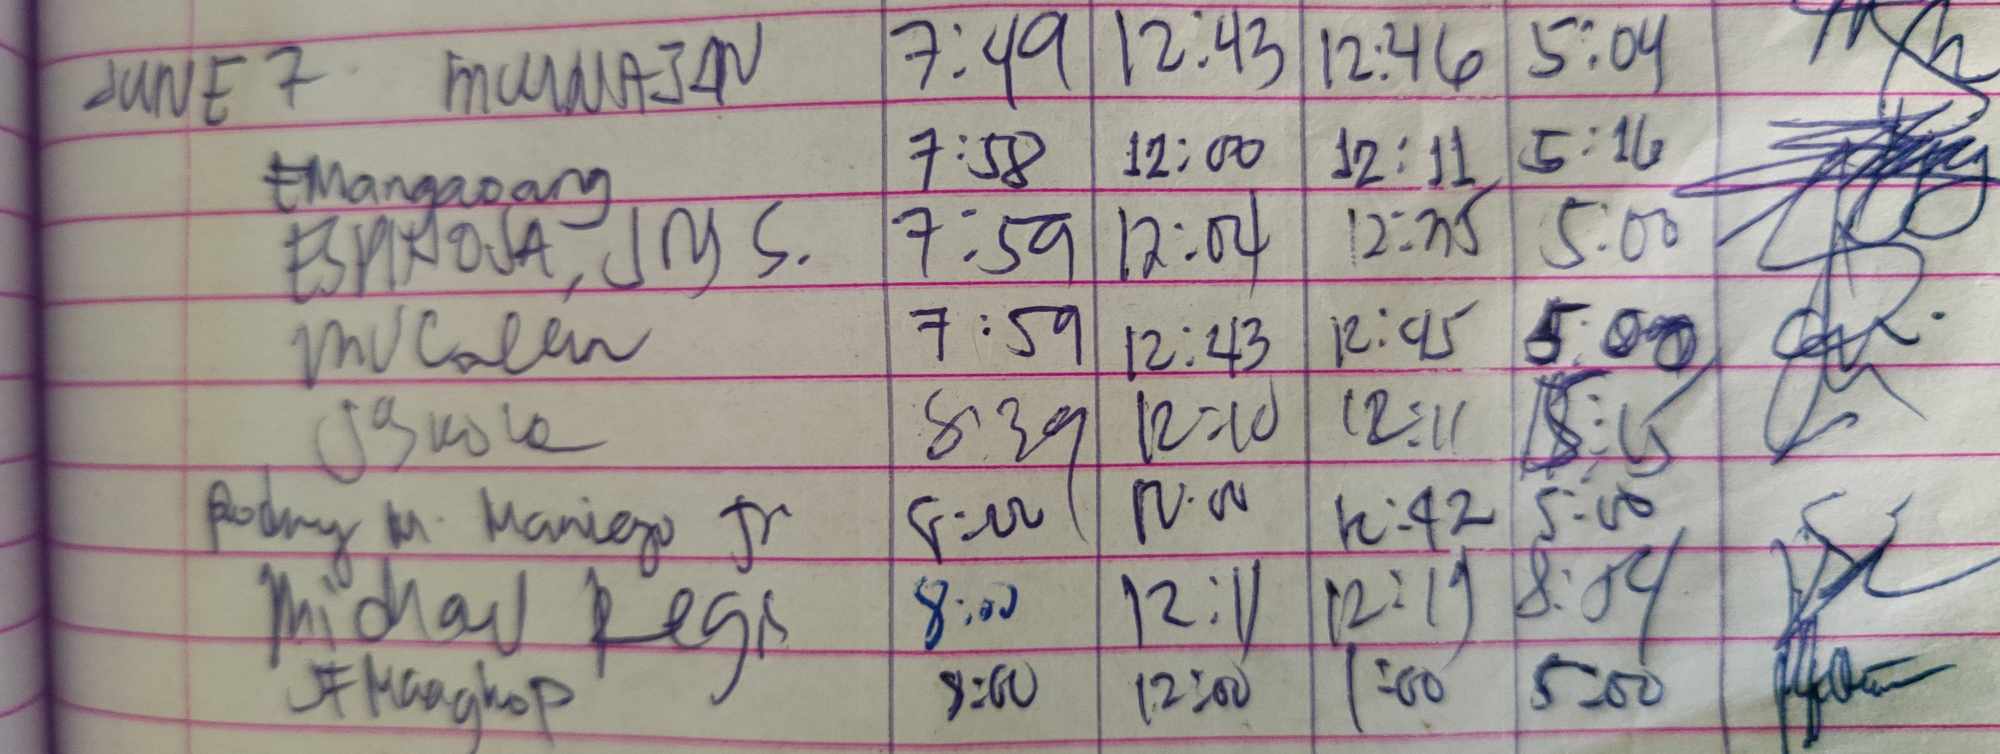 JUNE 7 7:49 12:43 12:46 5:04
EMangaoang 7:58 12:00 12:11 5:16
ESPINOSA, JMS. 7:59 12:04 12: 5:00
7:59 12:43 12:45 5:00
8:39 12:10 12:11
Rodny M. Maniego Jr 8:00 12:00 12:42 5:00
Michael Regis 8:00 12:11 12:19 8:04
JF Maaghop 8:00 12:00 1:00 5:00